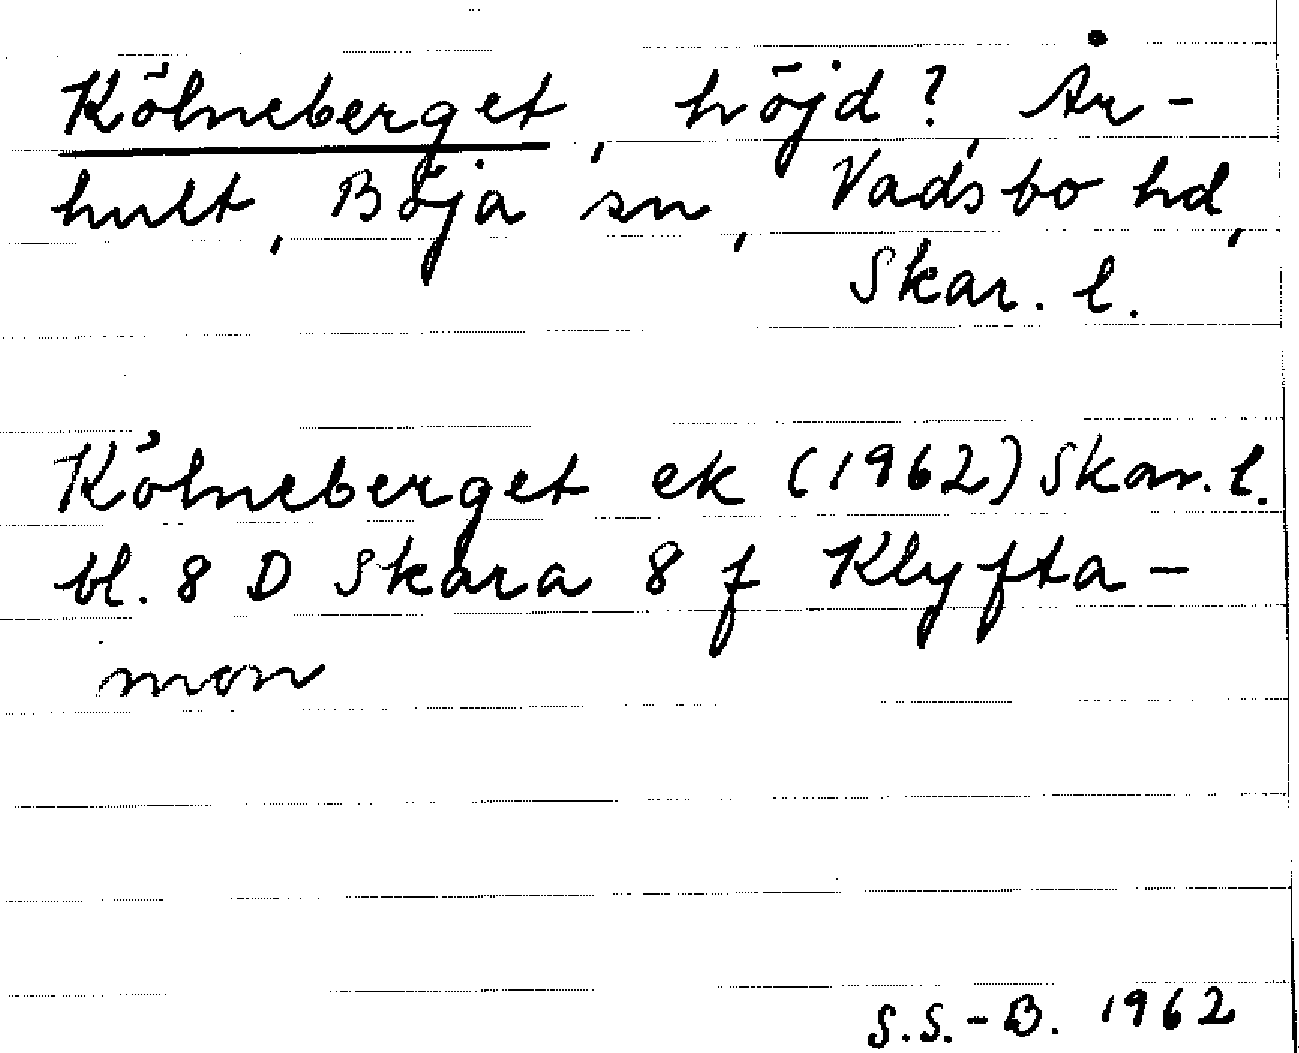 Kölneberget, höjd?, År-
hult, Böja sn, Vadsbo hd,
Skar. l.
Kölneberget ek (1962) Skar. l.
bl. 8 D Skara 8 f Klyfta-
mon
S.S.-B. 1962